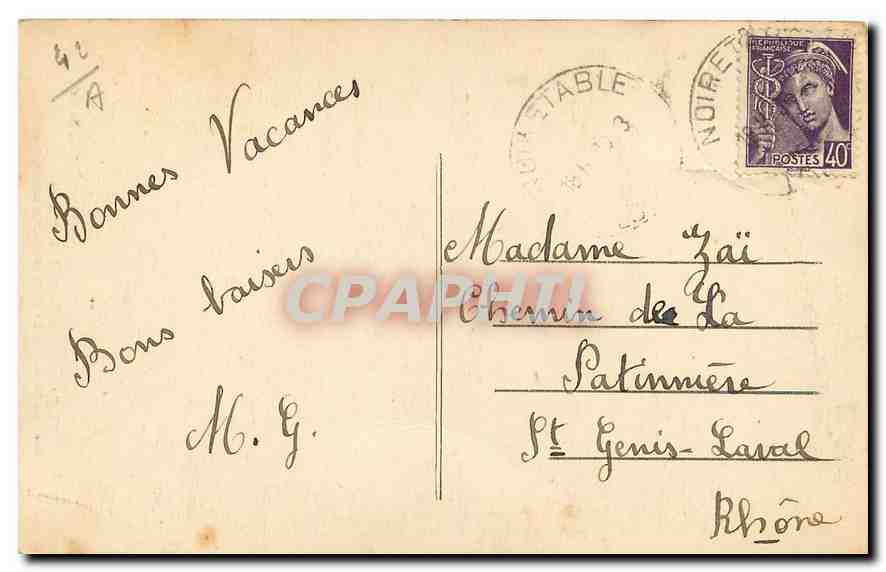 42
A
Bonnes Vacances
Bons baisers
M. G.
NOIRETABLE
NOIRET
REPUBLIQUE
FRANÇAISE
POSTES 40c
Madame Zaï
Chemin de La
Patinnière
St Genis-Laval
Rhône
CPAPHIL